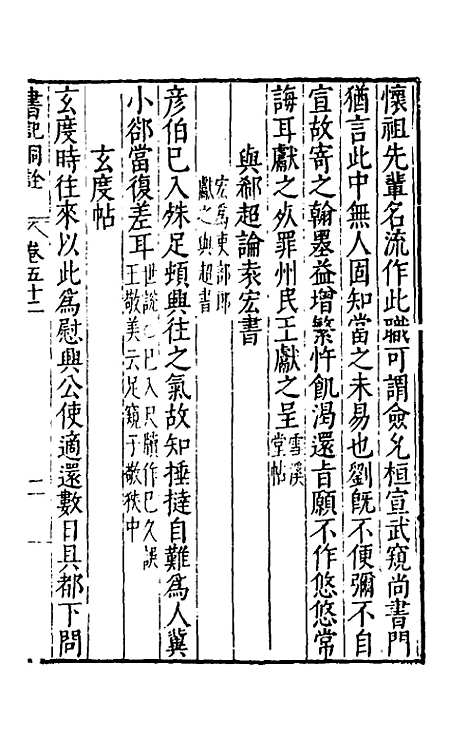 懷祖先輩名流作此職可謂僉允桓宣武窺尚書門
猶言此中無人固知當之未易也劉旣不便彌不自
宣故寄之翰墨益增繁忤飢渴還旨願不作悠悠常
誨耳獻之死罪州民王獻之呈
雪溪
堂帖
與郗超論袁宏書
宏爲吏部郎
獻之與超書
彦伯已入殊足頓興往之氣故知捶撻自難爲人冀
小郤當復差耳
世說已入尺牘作巳久誤
王敬美云足窺子敬狹中
玄度帖
玄度時往來以此爲慰興公使適還數日具都下問
書記洞詮
卷五十二
二